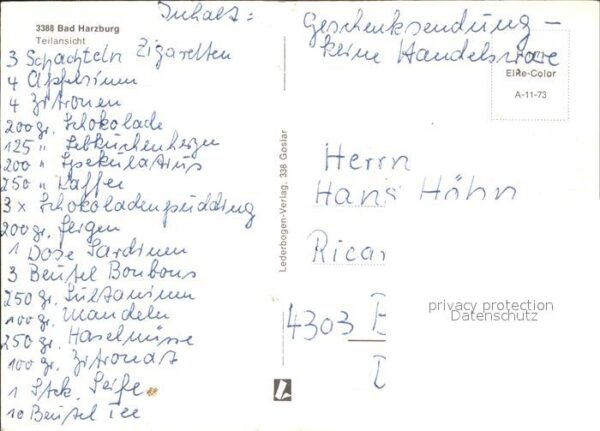 3388 Bad Harzburg
Teilansicht
Inhalt:
3 Schachteln Zigaretten
4 Apfelsinen
4 Zitronen
200 gr. Schokolade
125 " Lebkuchenherzen
200 " Spekulatius
250 " Kaffee
3 x Schokoladenpudding
200 gr. Feigen
1 Dose Sardinen
3 Beutel Bonbons
250 gr. Sultaninen
100 gr. Mandeln
250 gr. Haselnüsse
100 gr. Zitronat
1 Stck. Seife
10 Beutel Tee
Lederbogen-Verlag, 338 Goslar
Geschenksendung –
keine Handelsware
Elke-Color
A-11-73
Herrn
Hans Höhn
Ricar
4303 E
privacy protection
Datenschutz